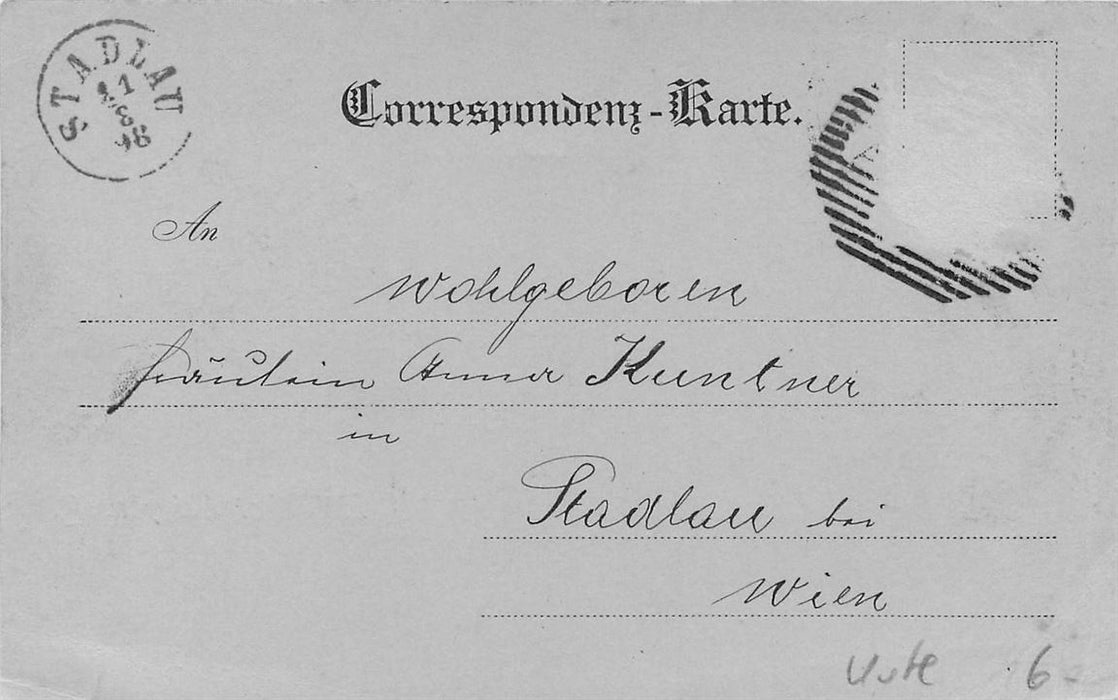 STADLAU
8
98
Correspondenz-Karte.
An
Wohlgeboren
Fräulein Anna Kuntner
in
Stadlau bei
Wien
6-